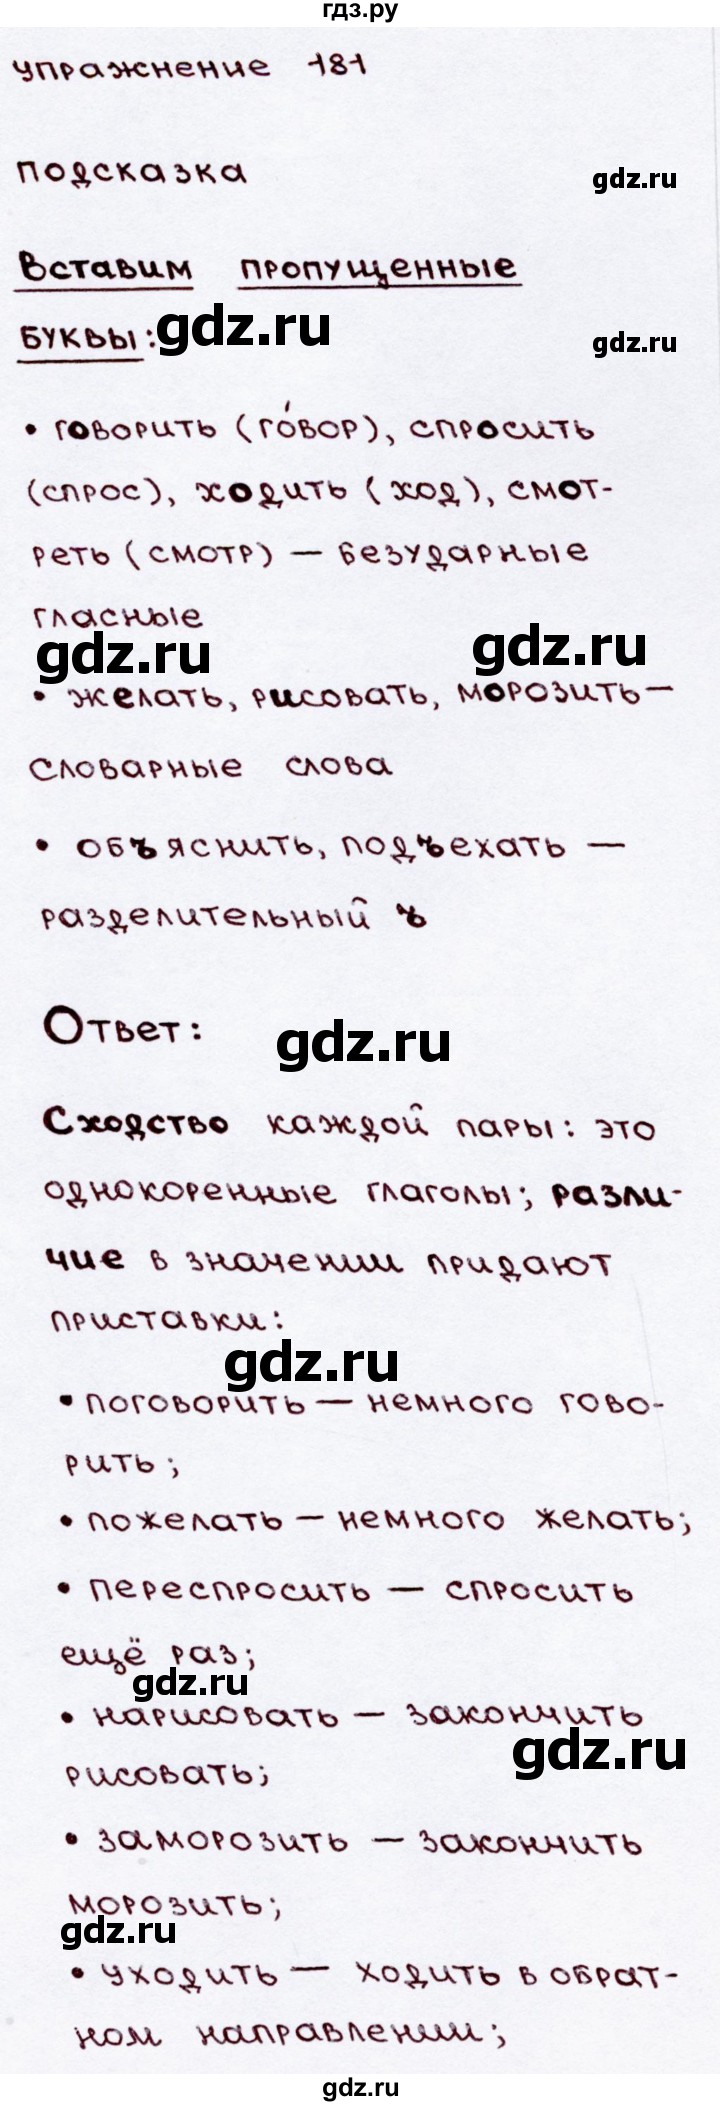 гдз.ру
упражнение 181
подсказка
gdz.ru
Вставим пропущенные
буквы:
gdz.ru
gdz.ru
• говорить (го́вор), спросить
(спрос), ходить (ход), смот-
реть (смотр) — безударные
гласные
gdz.ru
gdz.ru
• желать, рисовать, морозить —
словарные слова
• объяснить, подъехать —
разделительный ъ
Ответ:
gdz.ru
Сходство каждой пары: это
однокоренные глаголы; разли-
чие в значении придают
приставки:
gdz.ru
• поговорить — немного гово-
рить;
• пожелать — немного желать;
• переспросить — спросить
ещё раз;
gdz.ru
• нарисовать — закончить
gdz.ru
рисовать;
• заморозить — закончить
морозить;
gdz.ru
• уходить — ходить в обрат-
ном направлении;
gdz.ru